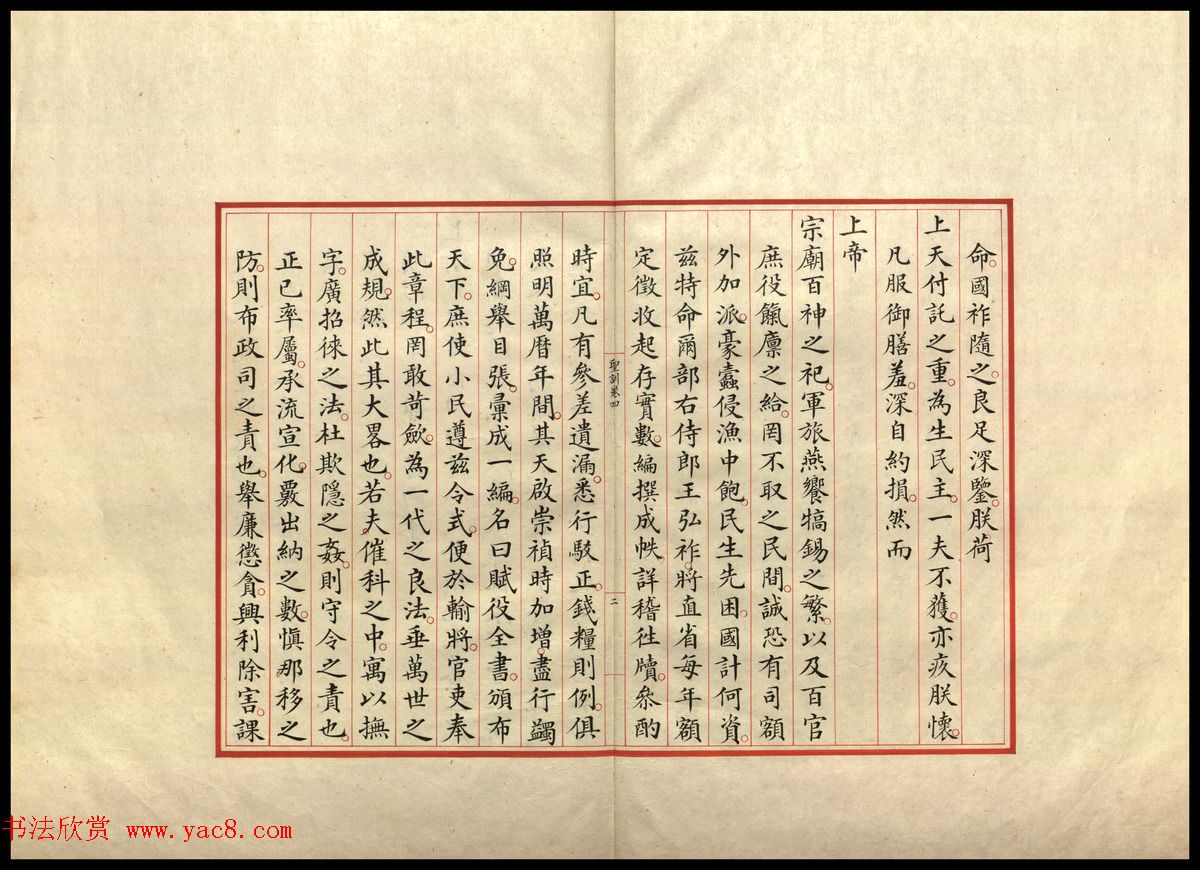 命。國祚隨之。良足深鑒。朕荷
上天付託之重。為生民主。一夫不獲。亦疚朕懷。
凡服御膳羞。深自約損。然而
上帝
宗廟百神之祀。軍旅燕饗犒錫之繁。以及百官
庶役餼廩之給。罔不取之民間。誠恐有司額
外加派。豪蠹侵漁中飽。民生先困。國計何資。
茲特命爾部右侍郎王弘祚。將直省每年額
定徵收起存實數。編撰成帙。詳稽往牘。參酌
聖訓卷四
二
時宜。凡有參差遺漏。悉行駁正。錢糧則例。俱
照明萬曆年間。其天啟崇禎時加增。盡行蠲
免。綱舉目張。彙成一編。名曰賦役全書。頒布
天下。庶使小民遵茲令式。便於輸將。官吏奉
此章程。罔敢苛斂。為一代之良法。垂萬世之
成規。然此其大畧也。若夫催科之中。寓以撫
字。廣招徠之法。杜欺隱之姦。則守令之責也。
正己率屬。承流宣化。覈出納之數。慎那移之
防。則布政司之責也。舉廉懲貪。興利除害。課
书法欣赏 www.yac8.com